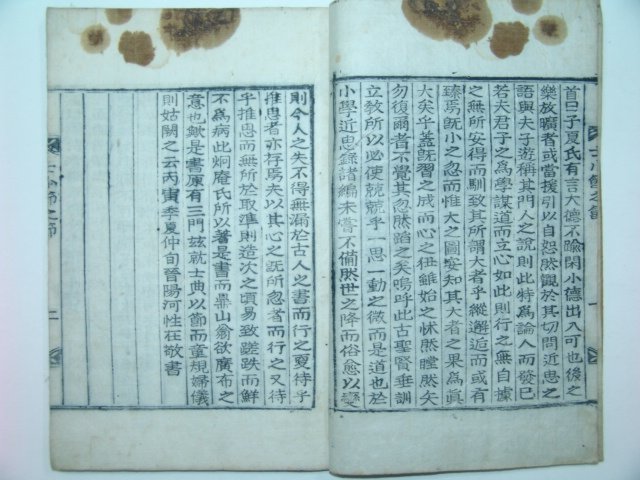 首曰子夏氏有言大德不踰閑小德出入可也後之
樂放曠者或當援引以自恕然觀於其切問近思之
語與夫子遊稱其門人之說則此特爲論人而發已
若夫君子之爲學謀道而立心如此則行之無自據
之無所安得而馴致其所謂大者乎縱邂逅而或有
臻焉旣小之忽而惟大之圖安知其大者之果爲眞
大矣乎蓋旣習之成而心之狃雖始之怵然瞠然矣
勿復爾者不覺其忽然蹈之矣嗚呼此古聖賢垂訓
立敎所以必使兢兢乎一思一動之微而是道也於
小學近思錄諸編未嘗不備然世之降而俗愈以變
則今人之失不得無漏於古人之書而行之夏待乎
推思者亦存焉夫以其心之旣所忽者而行之又待
乎推思而無所於取準則造次之頃易致蹉跌而鮮
不爲病此炯庵氏所以著是書而鼎山翁欲廣布之
意也歟是書庫有三門玆就士典以節而童規婦儀
則姑闕之云丙寅季夏仲旬晉陽河性在敬書
士小節之節
一
士小節之節
二